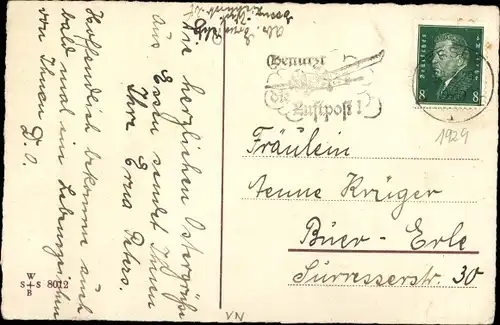 Die herzlichen Ostergrüße
aus Essen sendet Ihnen
Ihre Erna Peters.
Hoffendlich bekomme auch
bald mal ein Lebenszeichen
von Ihnen D. O.
Benutzt
die
Luftpost!
Deutsches Reich
8 8
1929
Fräulein
Aenne Krüger
Buer-Erle
Surresserstr. 30
W
S+S 8012
B